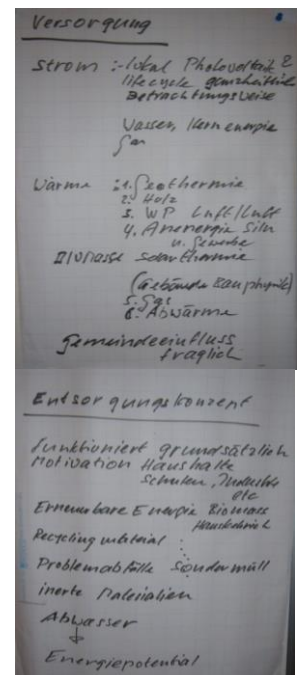 Versorgung
Strom :- lokal Photovoltaik
lifecycle ganzheitlich
Betrachtungsweise
Wasser, Kernenergie
Gas
Wärme : 1. Geothermie
2. Holz
3. WP Luft/Luft
4.
u. Gewerbe
Solarthermie
(Gebäude Bauphysik)
5. Gas
6. Abwärme
Gemeindeeinfluss
fraglich
Entsorgungskonzept
funktioniert grundsätzlich
Motivation Haushalte
Schulen, Industrie
etc
Erneuerbare Energie Biomasse
Hauskehrich
Recycling material
Problemabfälle Sondermüll
inerte Materialien
Abwasser
Energiepotential